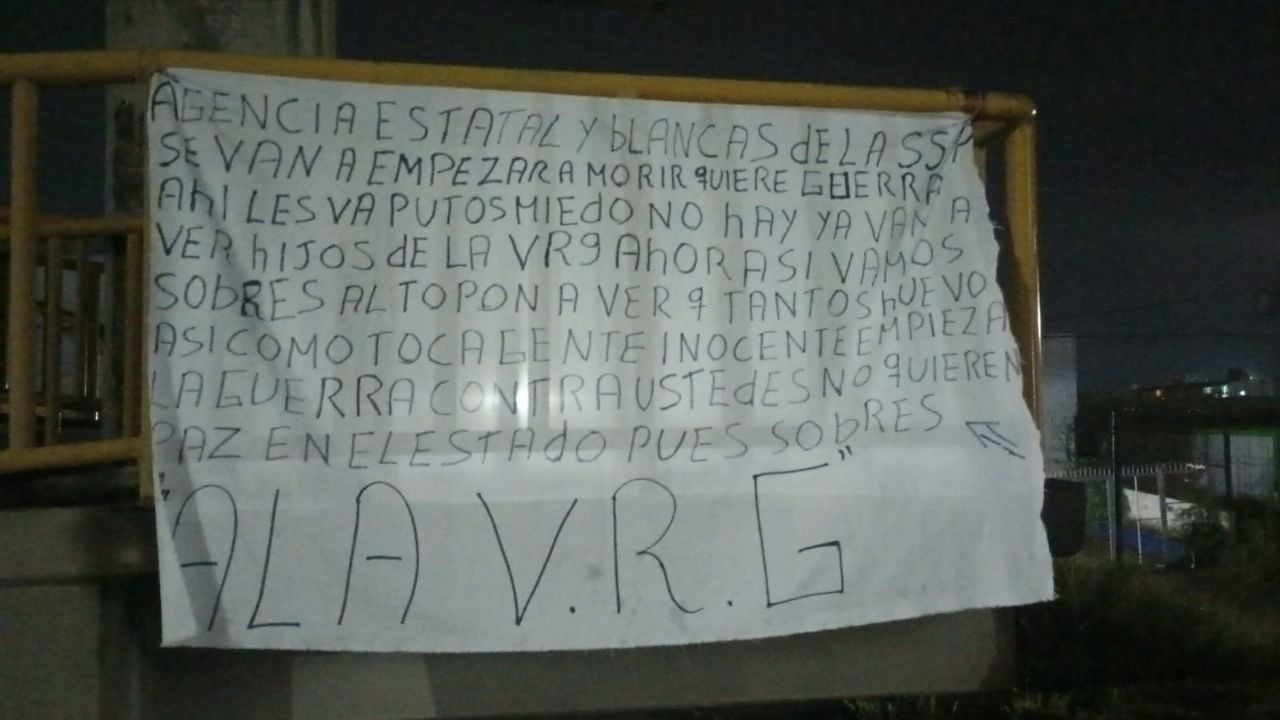 AGENCIA ESTATAL Y bLANCAS dE LA SSP
SE VAN A EMPEZAR A MORIR qUIERE GUERRA
AhI LES VA PUTOS MIEdO NO hAY YA VAN A
VER hIJOS dE LA VRg AhORA SI VAMOS
SObRES AL TOPON A VER q TANTOS hUEVO
ASI COMO TOCA GENTE INOCENTE EMPIEZA
LA GUERRA CONTRA USTEdES NO qUIEREN
PAZ EN EL ESTAdO PUES SObRES
"ALA V.R.G"